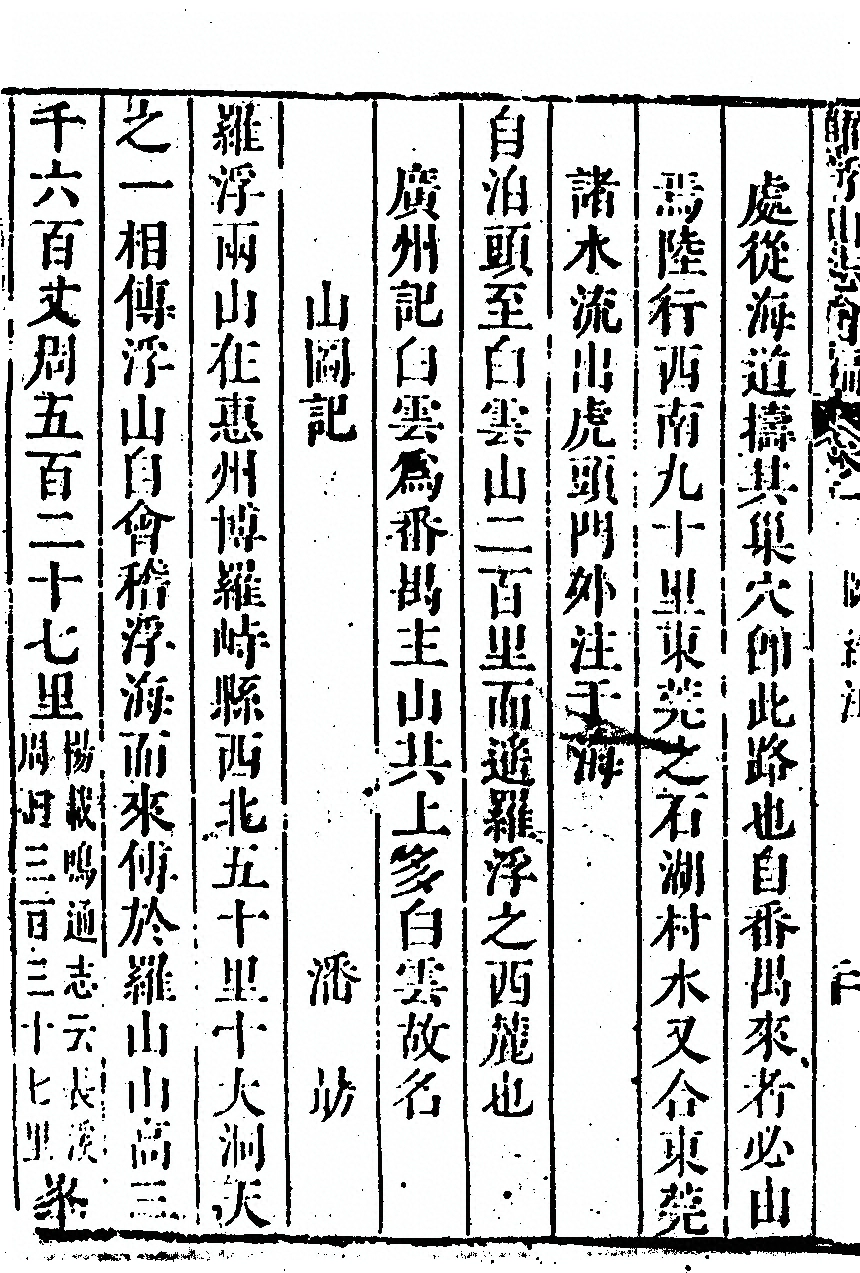 處從海道擣其巢穴卽此路也自番禺來者必山
焉陸行西南九十里東莞之石湖村水又合東莞
諸水流出虎頭門外注于海
自泊頭至白雲山二百里而遥羅浮之西麓也
廣州記白雲爲番禺主山其上多白雲故名
山圖記 潘 昉
羅浮兩山在惠州博羅峙縣西北五十里十大洞天
之一相傳浮山自會稽浮海而來傅於羅山山高三
千六百丈周五百二十七里
楊載鳴通志云長溪
周迴三百三十七里